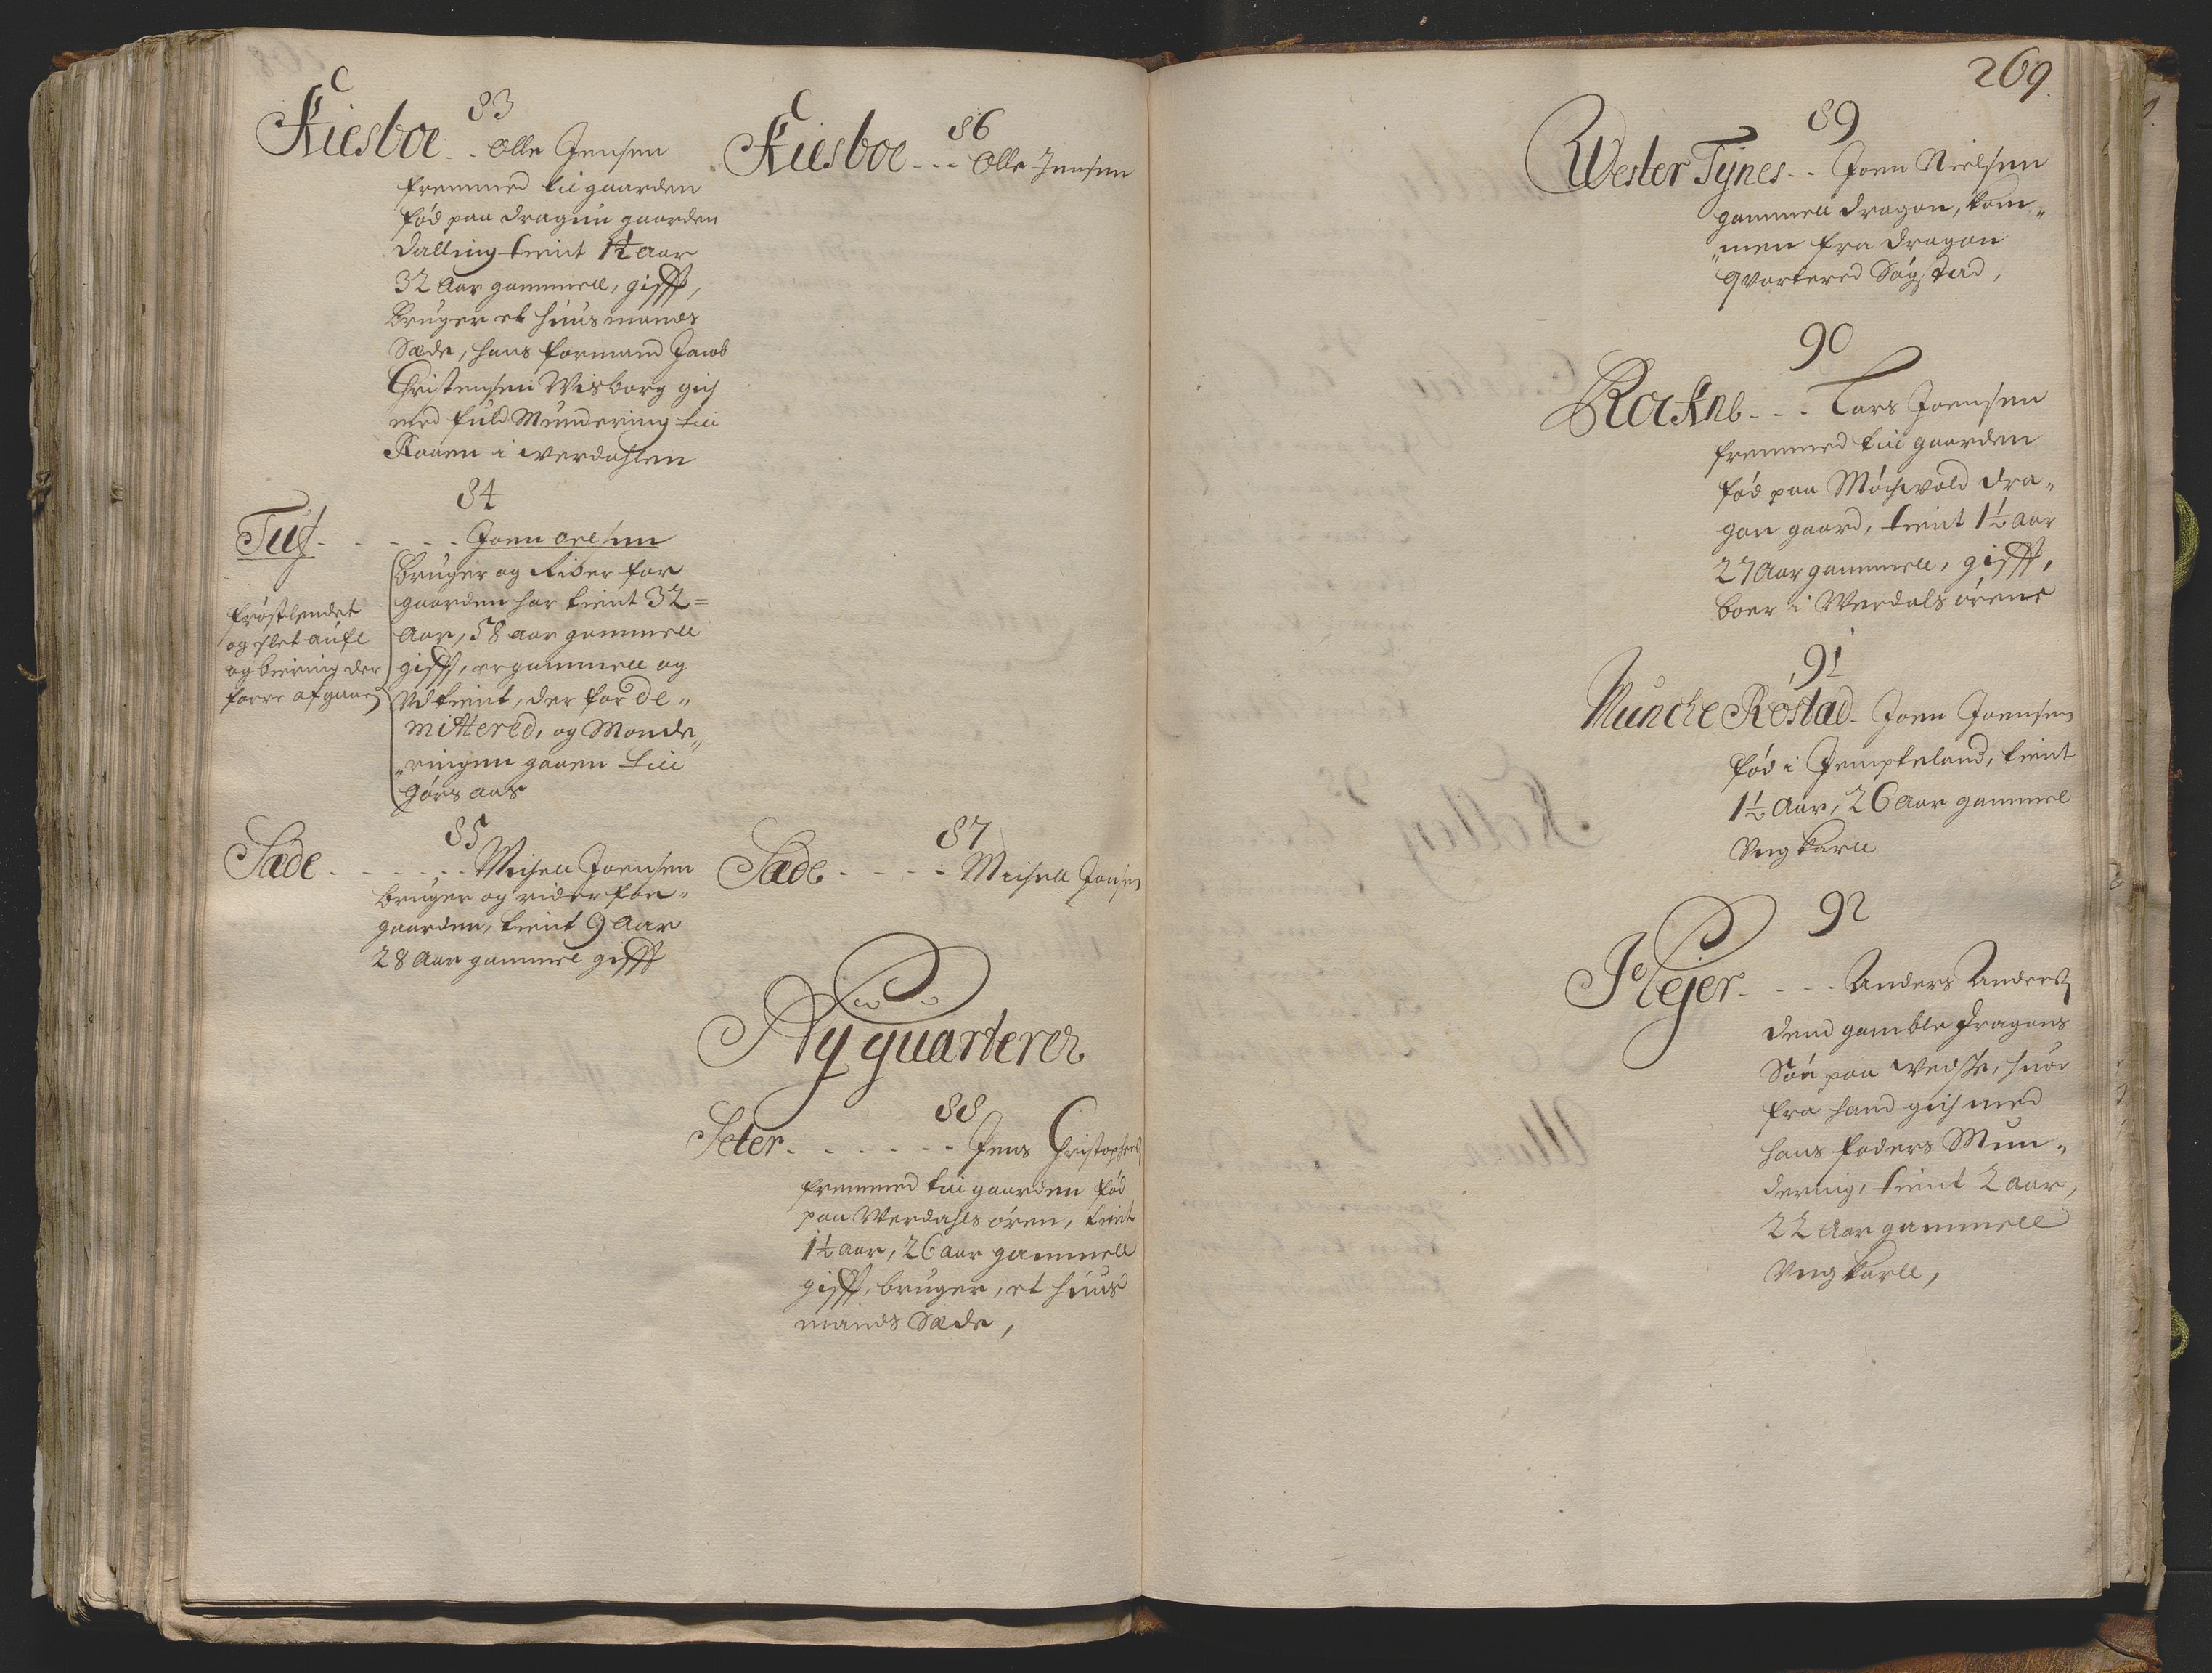 83
Kiesboe - - Olle Jensen
fremmed til gaarden
fød paa dragun gaarden
Dalling tient 1½ Aar
32 Aar gammell, gifft,
bruger et huusmands
Sæde, hans formand Jacob
Christensen Wisborg gich
med fuld Mundering till
Kaaen i werdahlen
84
Tuf - - - - - Joen Olsen
Bruger og Rider for
gaarden har tient 32=
Aar, 58 aar gammell
gifft, er gammell og
Vdtient, der for de„
mittered, og Monde„
„ringen gaaen till
Giørs aas
frostlendet
og slet aufl
og biering der
forre afgaaed
85
Sæde - - - - - - Michell Joensen
bruger og rider for„
gaarden, tient 9 Aar
28 Aar gammel gifft
86
Kiesboe - - - Olle Jensen
87
Sæde - - - - Michell Jonsen
Ny quarterer
88
Seter - - - - - - Jens Christophers
fremmed till gaarden fød
paa Werdahls ören, tient
1½ aar, 26 aar gammell
gifft, bruger, et huus
mands Sæde,
269.
89
Wester Tÿnes - - Joen Nielsen
gammell dragon, kom„
„men fra dragon
qvartered Søgstad,
90
Rosknb - - - Lars Joensen
fremmed till gaarden
fød paa Møchvold dra„
gon gaard, tient 1½ aar
27 Aar gammell, gifft,
boer i Werdals ørene
91
Muncke Røstad - Joen Joensen
fød i Jempteland, tient
1½ Aar, 26 Aar gammel
Vng karll
92
Hejer - - - - Anders Anders
dend gamble dragons
Søn paa wedste, huor
fra hand gich med
hans faders Mun„
dering, tient 2 aar,
22 Aar gammell
Vng karll,